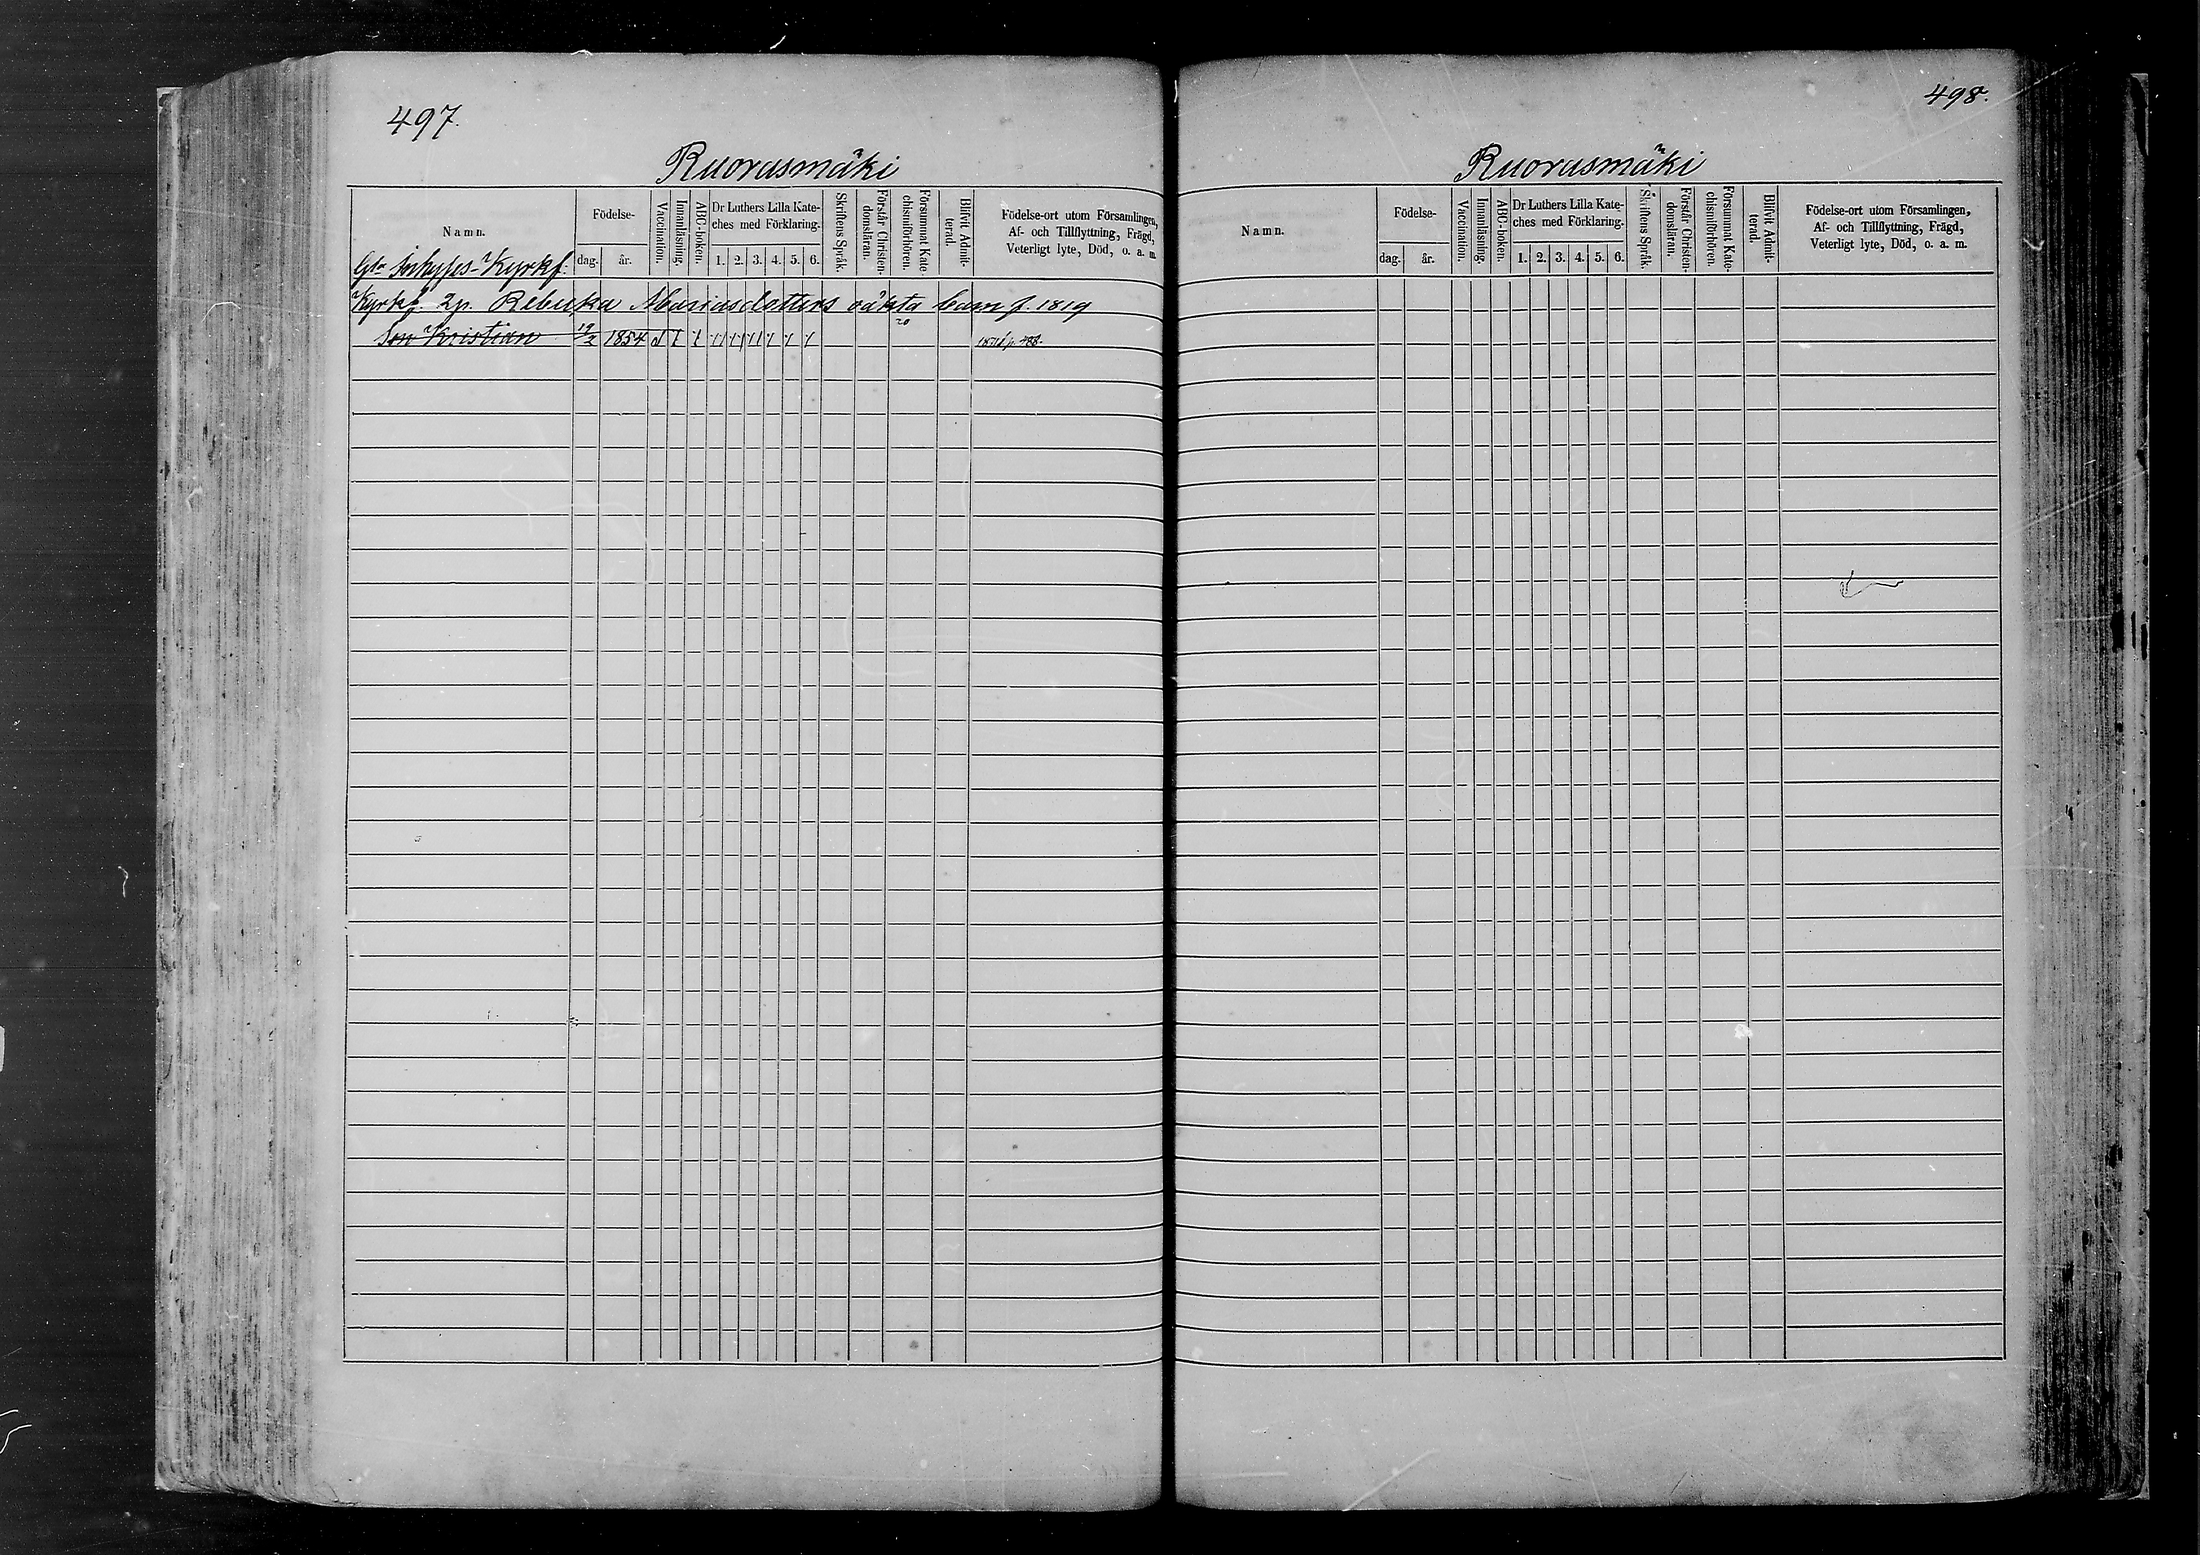 497.
Ruorasmäki
Namn.
Födelse-
dag.
år.
Vaccination.
Innanläsning.
ABC-boken.
Dr Luthers Lilla Kate-
ches med Förklaring.
1. 2. 3. 4. 5. 6.
Skriftens Språk.
Förstår Christen-
domsläran.
Försummat Kate-
chismiförhören.
Blifvit Admit-
terad.
Födelse-ort utom Församlingen,
Af- och Tillflyttning, Frägd,
Veterligt lyte, Död, o. a. m.
Kyrkf. 2p. Rebecka Mariasdotters oäkta barn f. 1819
20
Son Kristian 19/2 1854
498.
Ruorasmäki
Namn.
Födelse-
dag.
år.
Vaccination.
Innanläsning.
ABC-boken.
Dr Luthers Lilla Kate-
ches med Förklaring.
1. 2. 3. 4. 5. 6.
Skriftens Språk.
Förstår Christen-
domsläran.
Försummat Kate-
chismiförhören.
Blifvit Admit-
terad.
Födelse-ort utom Församlingen,
Af- och Tillflyttning, Frägd,
Veterligt lyte, Död, o. a. m.